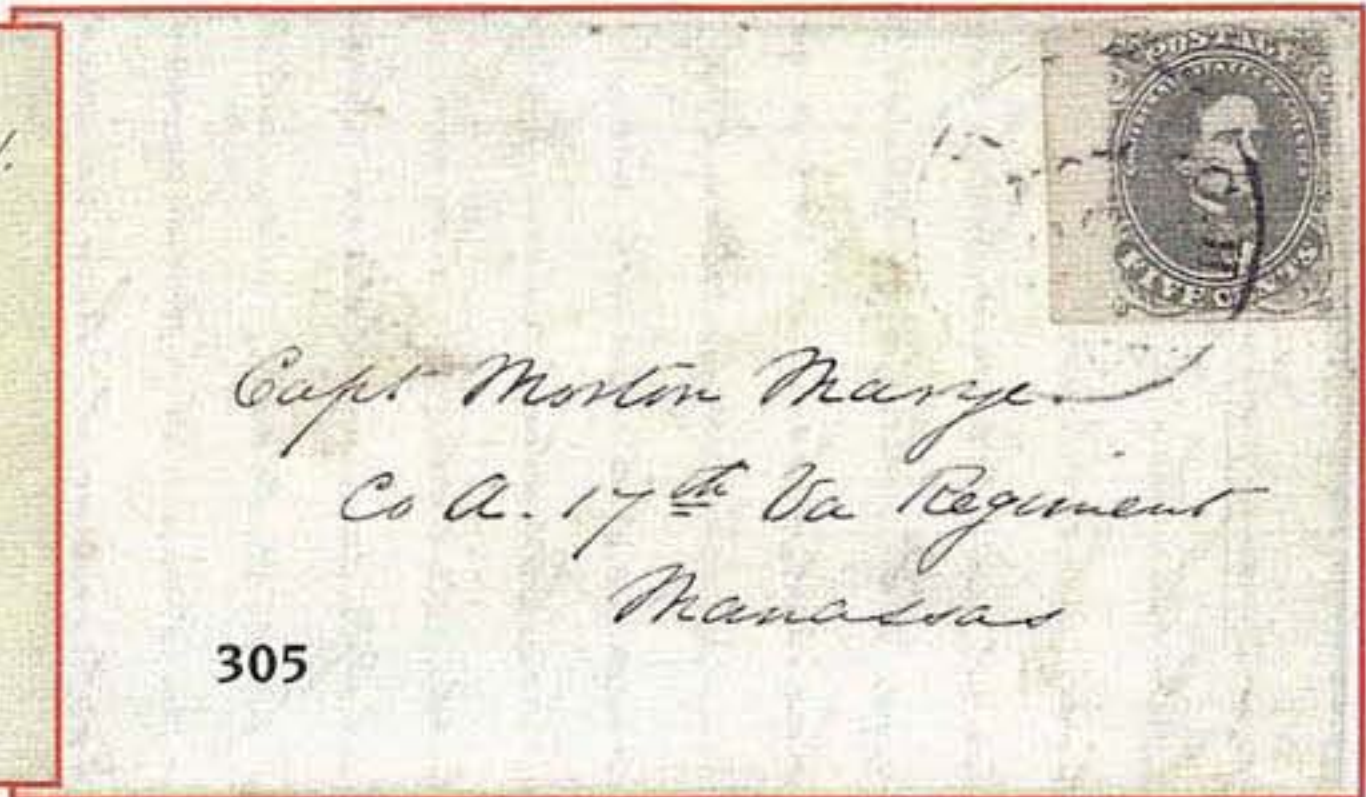 POSTAGE
FIVE CENTS
Capt Morton Marye
Co A. 17th Va Regiment
Manassas
305